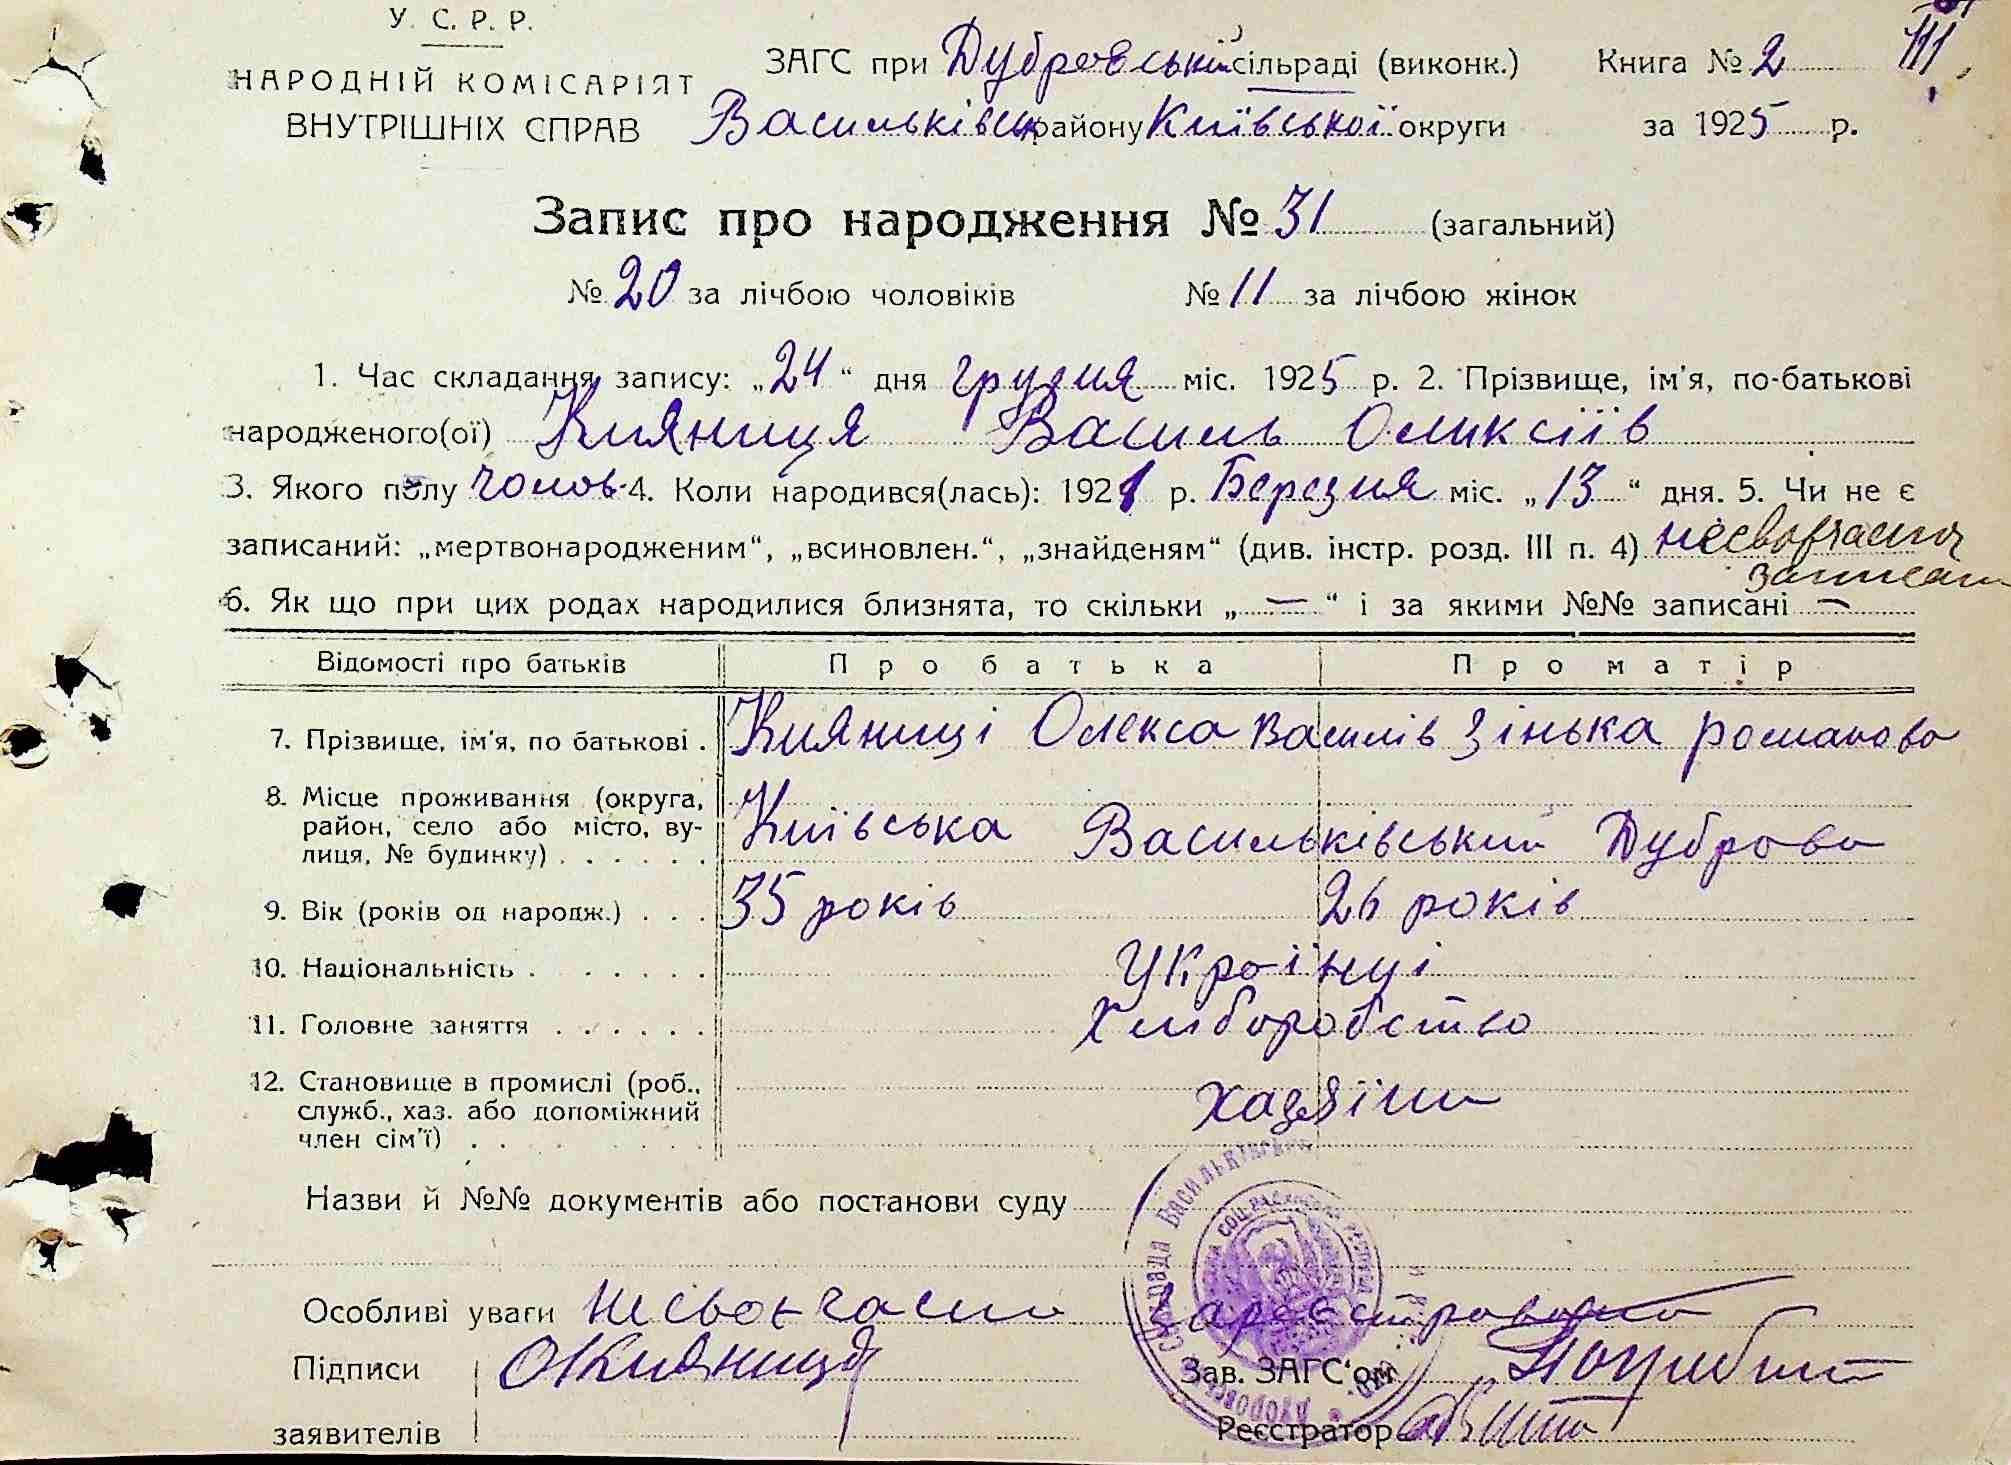 У. С. Р. Р.
НАРОДНІЙ КОМІСАРІЯТ
ВНУТРІШНІХ СПРАВ
ЗАГС при Дубровській сільраді (виконк.) Книга № 2
Васильківськ району Київської округи за 1925 р.
Запис про народження № 31 (загальний)
№ 20 за лічбою чоловіків № 11 за лічбою жінок
1. Час складання запису: „24“ дня грудня міс. 1925 р. 2. Прізвище, ім'я, по-батькові
народженого(ої) Кияниця Василь Оликсіїв
3. Якого полу чолов. 4. Коли народився(лась): 1921 р. Березня міс. „13“ дня. 5. Чи не є
записаний: „мертвонародженим“, „всиновлен.“, „знайденям“ (див. інстр. розд. III п. 4) несвоєчасно
записан
6. Як що при цих родах народилися близнята, то скільки „—“ і за якими №№ записані —
Відомості про батьків Про батька Про матір
7. Прізвище, ім'я, по батькові . Кияниці Олекса Василів Зінька романова
8. Місце проживання (округа,
район, село або місто, ву-
лиця, № будинку) . . . . . . Київська Васильківський Дуброва
9. Вік (років од народж.) . . . 35 років 26 років
10. Національність . . . . . . . Українці
11. Головне заняття . . . . . . Хліборобство
12. Становище в промислі (роб.,
служб., хаз. або допоміжний
член сім'ї) . . . . . . хазяїни
Назви й №№ документів або постанови суду
Особливі уваги несвоєчасно зареєстровано
Підписи ОКияниця Зав. ЗАГС'ом
заявителів Реєстратор